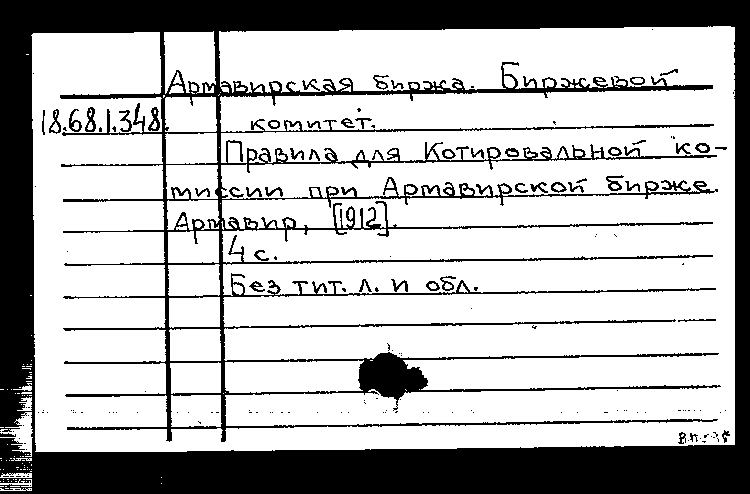 Армавирская биржа. Биржевой
18.68.1.348. комитет.
Правила для Котировальной ко-
миссии при Армавирской бирже.
Армавир, [1912].
4 с.
Без тит. л. и обл.